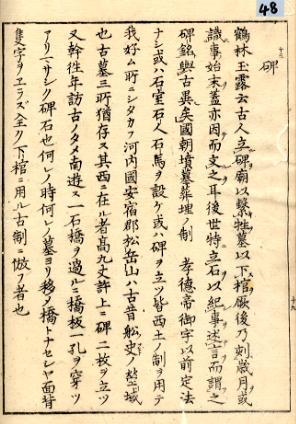 48
碑
鶴林玉露云古人立碑廟以繋牲墓以下棺厥後乃刻歳月或
識事始末蓋亦因而文之耳後世特立石以紀事述言而謂之
碑銘與古異矣國朝墳墓葬埋ノ制 孝德帝御宇以前定法
ナシ或ハ石室石人石馬ヲ設ケ或ハ碑ヲ立ツ皆西土ノ制ヲ用テ
我好ム所ニシタカフ河内國安宿郡松岳山ハ古昔船史ノ塋域
也古墓三所猶存ス其西ニ在ル者高九丈許上ニ碑二枚ヲ立ツ
又幹徃年訪古ノタメ南遊ス一石橋ヲ過ルニ橋板一孔ヲ穿ツ
アリ一サシク碑石也何レノ時何レノ墓ヨリ移メ橋トナセシヤ面背
隻字ヲヱラズ全ク下棺ニ用ル古制ニ倣フ者也